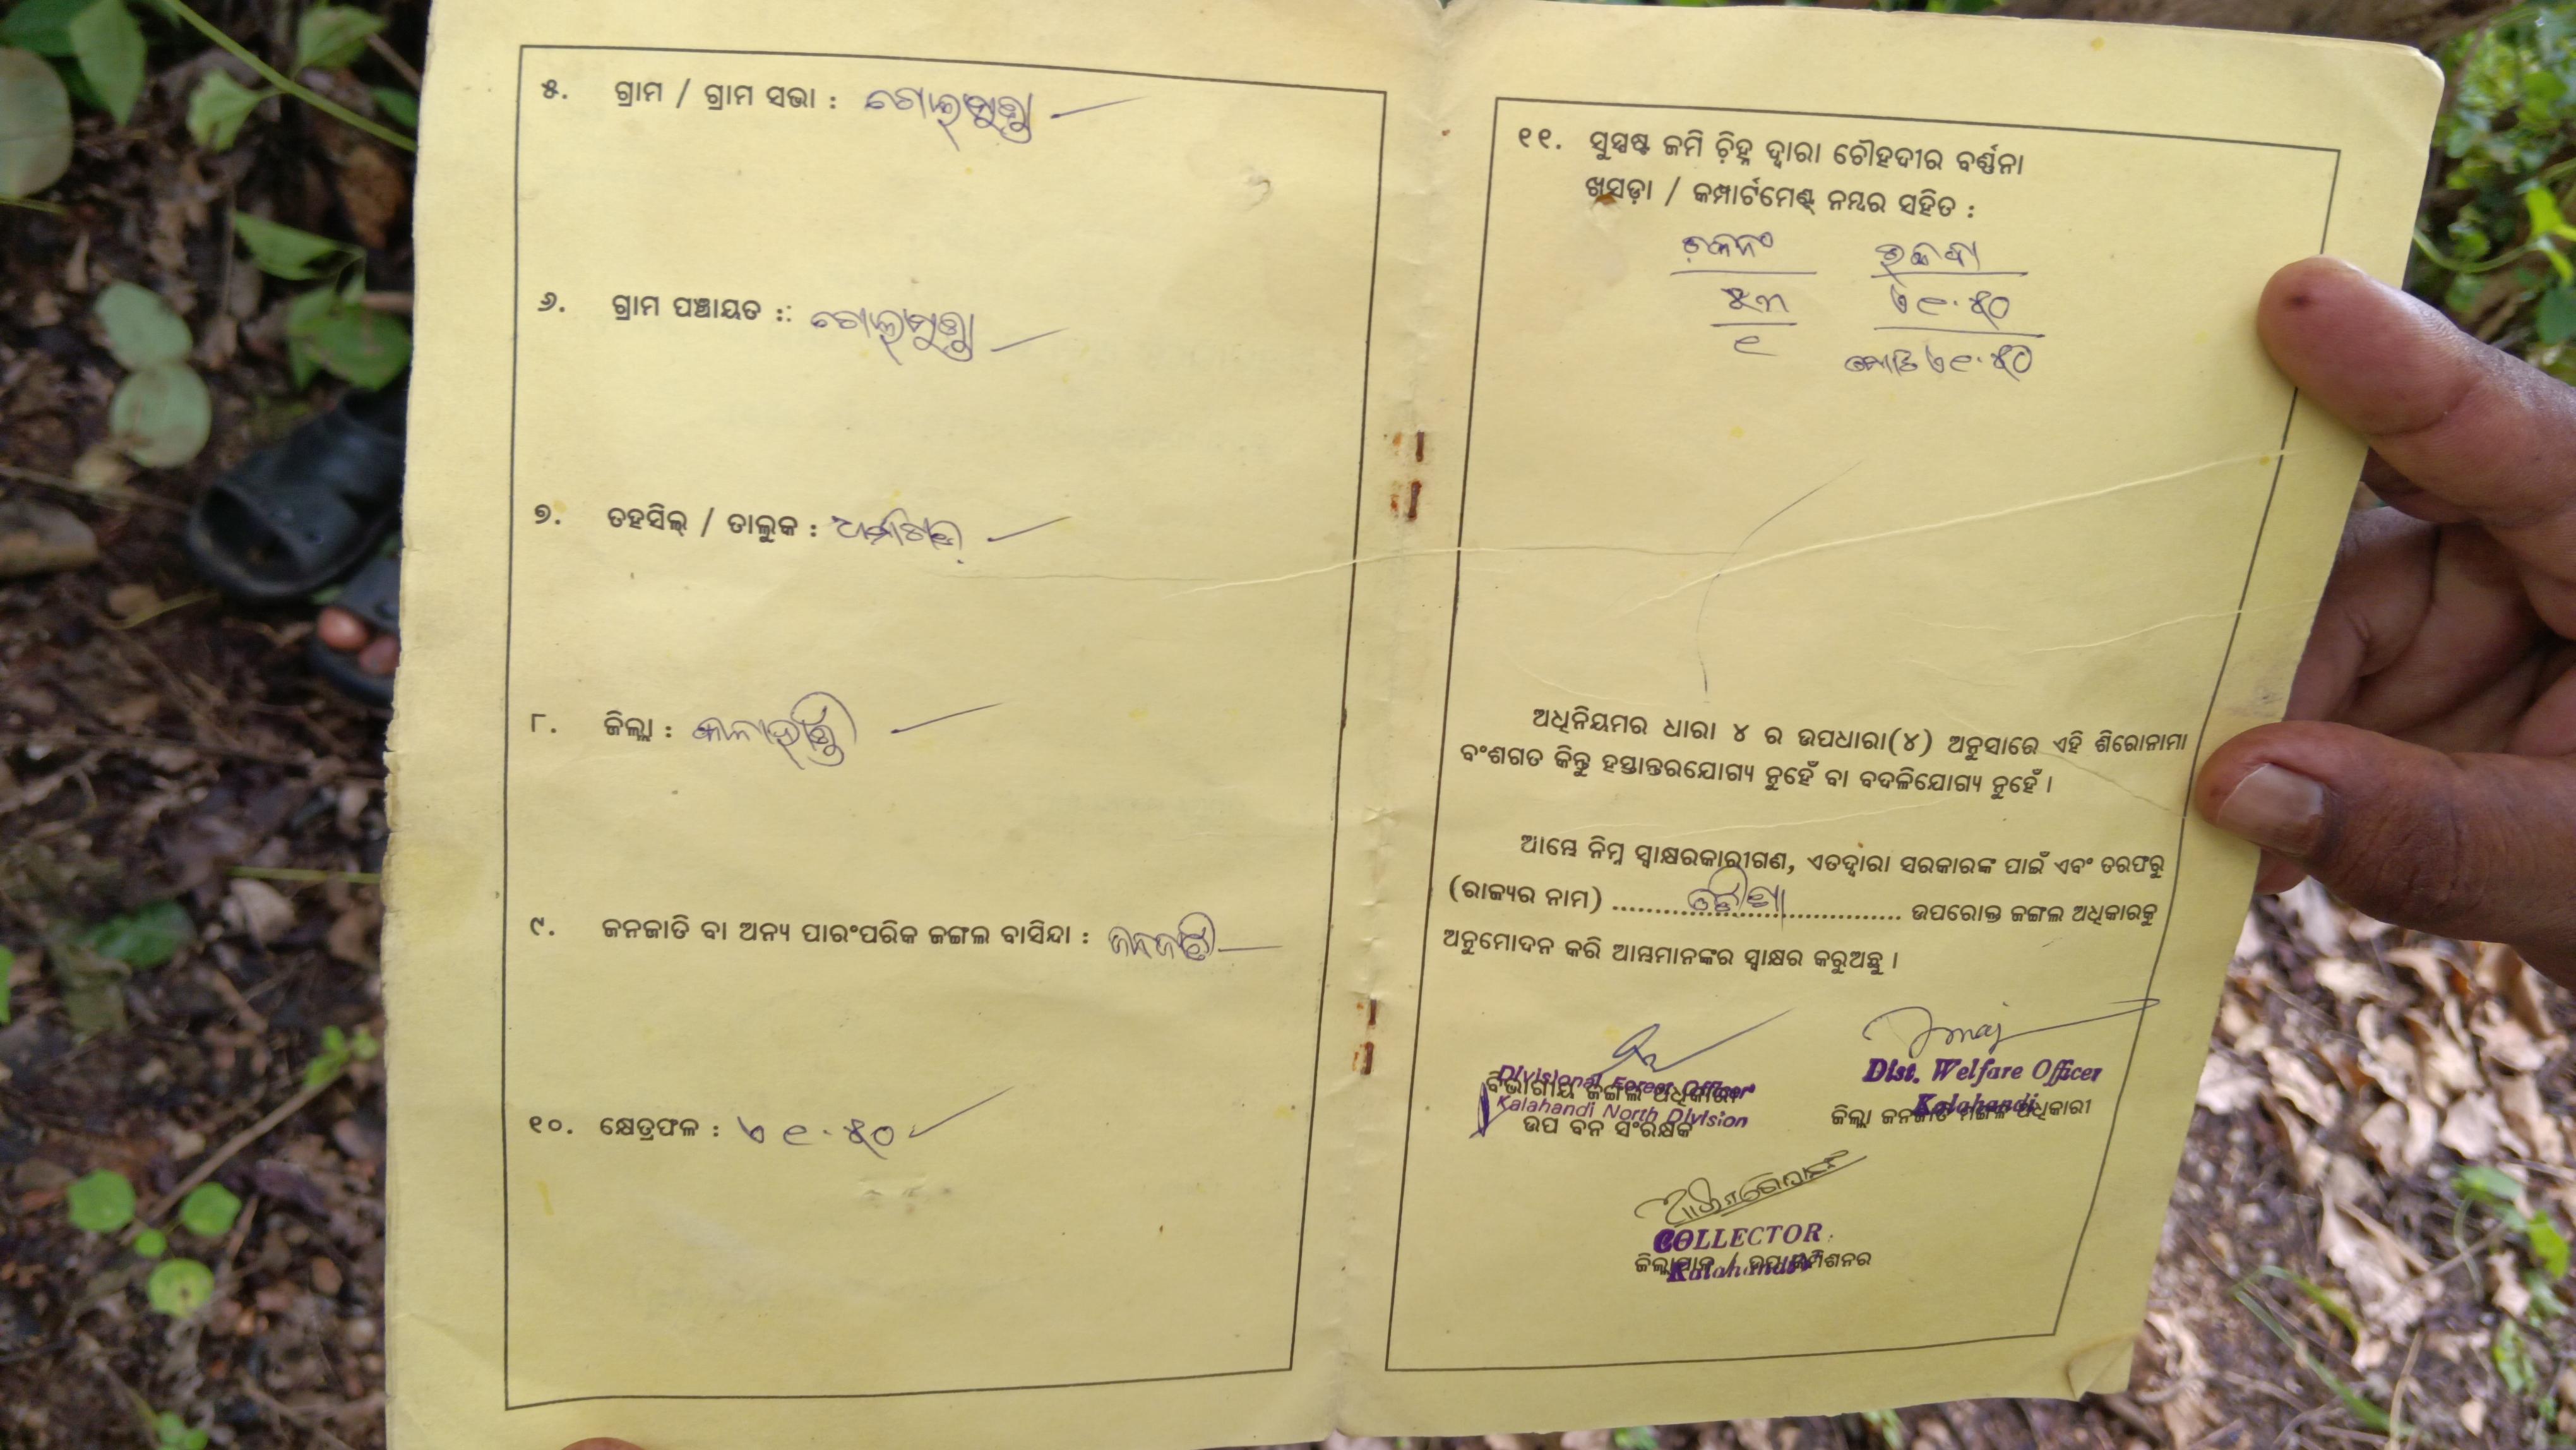 ୫. ଗ୍ରାମ / ଗ୍ରାମ ସଭା : ଗୋଲମୁଣ୍ଡା
୬. ଗ୍ରାମ ପଞ୍ଚାୟତ :: ଗୋଲାମୁଣ୍ଡା
୭. ତହସିଲ୍ / ତାଲୁକ : ଧର୍ମଗଡ଼
୮. ଜିଲ୍ଲା : କଳାହାଣ୍ଡି
୯. ଜନଜାତି ବା ଅନ୍ୟ ପାରଂପରିକ ଜଙ୍ଗଲ ବାସିନ୍ଦା : ଜନଜାତି
୧୦. କ୍ଷେତ୍ରଫଳ : ଏ ୧.୫୦
୧୧. ସୁସ୍ପଷ୍ଟ ଜମି ଚି଼ହ୍ନ ଦ୍ୱାରା ଚୌହଦୀର ବର୍ଣ୍ଣନା
ଖସଡ଼ା / କମ୍ପାର୍ଟମେଣ୍ଟ୍ ନମ୍ବର ସହିତ :
ପ୍ଲଟ ନଂ ରକବା
୫୩ ଏ ୧.୫୦
୧ ମୋଟ ଏ ୧.୫୦
ଅଧିନିୟମର ଧାରା ୪ ର ଉପଧାରା(୪) ଅନୁସାରେ ଏହି ଶିରୋନାମା
ବଂଶଗତ କିନ୍ତୁ ହସ୍ତାନ୍ତରଯୋଗ୍ୟ ନୁହେଁ ବା ବଦଳିଯୋଗ୍ୟ ନୁହେଁ ।
ଆମ୍ଭେ ନିମ୍ନ ସ୍ୱାକ୍ଷରକାରୀଗଣ, ଏତଦ୍ୱାରା ସରକାରଙ୍କ ପାଇଁ ଏବଂ ତରଫରୁ
(ରାଜ୍ୟର ନାମ) ........ ଓଡ଼ିଶା ........ ଉପରୋକ୍ତ ଜଙ୍ଗଲ ଅଧିକାରକୁ
ଅନୁମୋଦନ କରି ଆମ୍ଭମାନଙ୍କର ସ୍ୱାକ୍ଷର କରୁଅଛୁ ।
Divisional Forest Officer
ବିଭାଗୀୟ ଜଙ୍ଗଲ ଅଧିକାରୀ
Kalahandi North Division
ଉପ ବନ ସଂରକ୍ଷକ
Dist. Welfare Officer
Kalahandi
ଜିଲ୍ଲା ଜନଜାତି ମଙ୍ଗଳ ଅଧିକାରୀ
COLLECTOR
ଜିଲ୍ଲାପାଳ / ଉପ କମିଶନର
Kalahandi